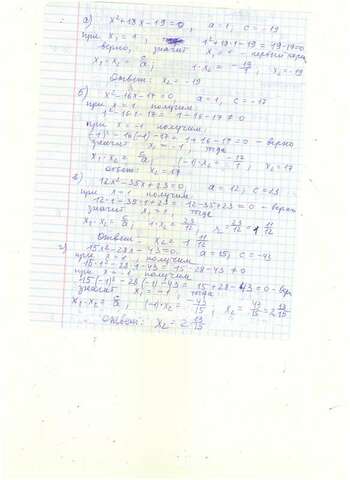 а) x²+18x-19=0, a=1, c=-19
при x₁=1, 1²+18·1-19=19-19=0
верно, значит x₁=1 - первый корень
x₁·x₂=c/a; 1·x₂=-19/1, x₂=-19
Ответ: x₂=-19
б) x²-16x-17=0 a=1, c=-17
при x=1 получим
1²-16·1-17=1-16-17≠0
при x=-1 получим
(-1)²-16(-1)-17=1+16-17=0 - верно
значит x₁=-1, тогда
x₁·x₂=c/a; (-1)·x₂=-17/1, x₂=17
Ответ: x₂=17
в) 12x²-35x+23=0, a=12, c=23
при x=1 получим
12·1-35·1+23=12-35+23=0 - верно
значит x₁=1, тогда
x₁·x₂=c/a, 1·x₂=23/12, x₂=23/12=1 11/12
Ответ: x₂=1 11/12
г) 15x²-28x-43=0, a=15, c=-43
при x=1, получим
15·1²-28·1-43=15-28-43≠0
при x=-1, получим
15(-1)²-28(-1)-43=15+28-43=0 - вер
значит x₁=-1, тогда
x₁·x₂=c/a; (-1)·x₂=-43/15, x₂=43/15=2 13/15
Ответ: x₂=2 13/15